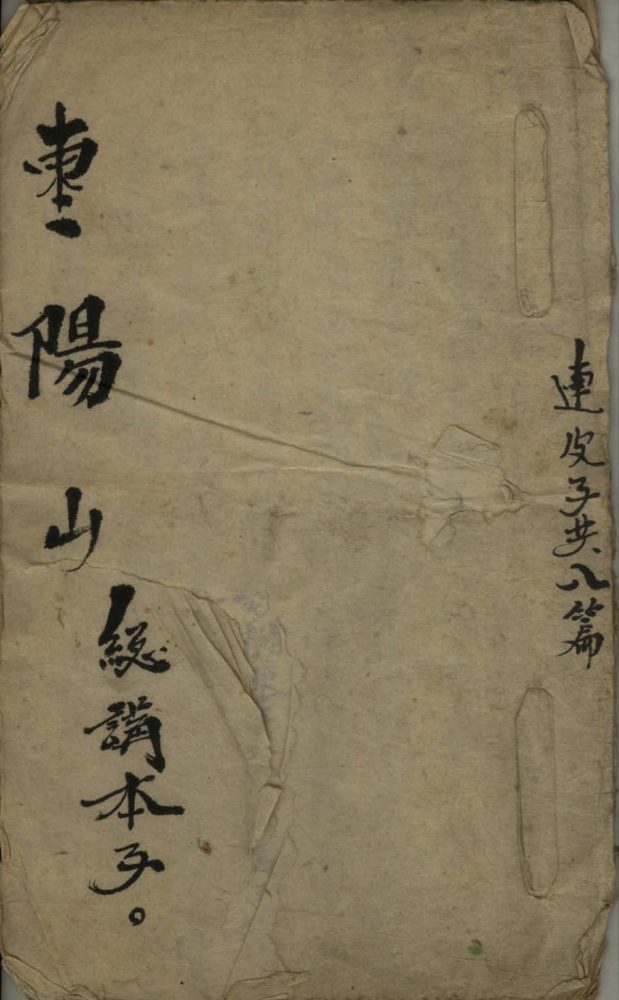 連皮子共八篇
棗陽山
總講本子。